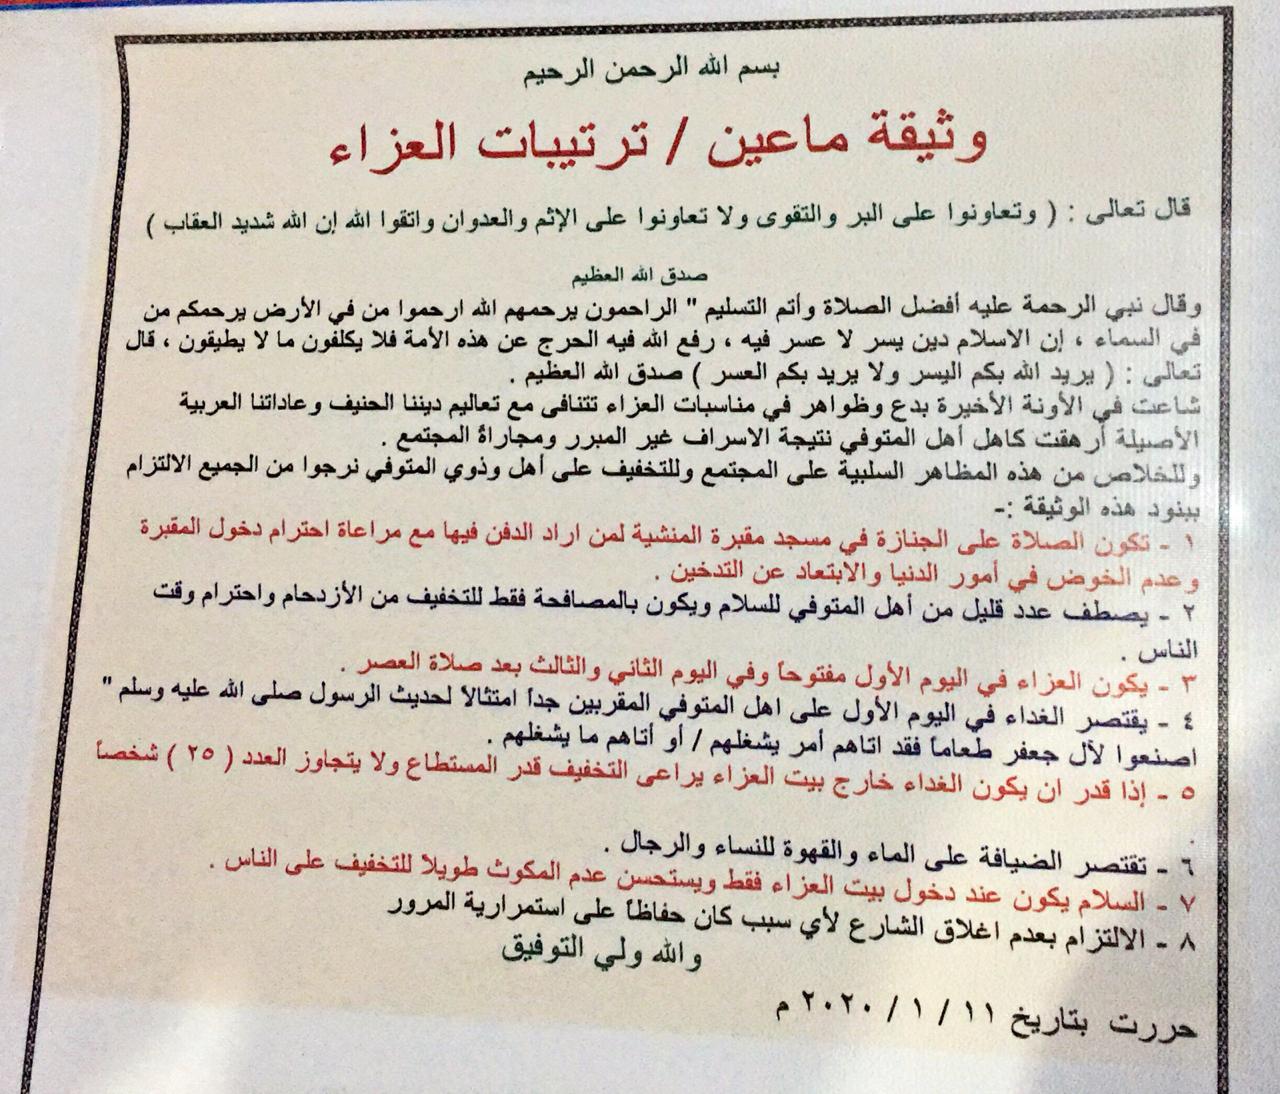 بسم الله الرحمن الرحيم
وثيقة ماعين / ترتيبات العزاء
قال تعالى : ( وتعاونوا على البر والتقوى ولا تعاونوا على الإثم والعدوان واتقوا الله إن الله شديد العقاب )
صدق الله العظيم
وقال نبي الرحمة عليه أفضل الصلاة وأتم التسليم " الراحمون يرحمهم الله ارحموا من في الأرض يرحمكم من
في السماء ، إن الاسلام دين يسر لا عسر فيه ، رفع الله فيه الحرج عن هذه الأمة فلا يكلفون ما لا يطيقون ، قال
تعالى : ( يريد الله بكم اليسر ولا يريد بكم العسر ) صدق الله العظيم .
شاعت في الأونة الأخيرة بدع وظواهر في مناسبات العزاء تتنافى مع تعاليم ديننا الحنيف وعاداتنا العربية
الأصيلة أرهقت كاهل أهل المتوفي نتيجة الاسراف غير المبرر ومجاراة المجتمع .
وللخلاص من هذه المظاهر السلبية على المجتمع وللتخفيف على أهل وذوي المتوفي نرجوا من الجميع الالتزام
ببنود هذه الوثيقة :-
١ - تكون الصلاة على الجنازة في مسجد مقبرة المنشية لمن اراد الدفن فيها مع مراعاة احترام دخول المقبرة
وعدم الخوض في أمور الدنيا والابتعاد عن التدخين .
٢ - يصطف عدد قليل من أهل المتوفي للسلام ويكون بالمصافحة فقط للتخفيف من الأزدحام واحترام وقت
الناس .
٣ - يكون العزاء في اليوم الأول مفتوحاً وفي اليوم الثاني والثالث بعد صلاة العصر .
٤ - يقتصر الغداء في اليوم الأول على اهل المتوفي المقربين جداً امتثالاً لحديث الرسول صلى الله عليه وسلم "
اصنعوا لأل جعفر طعاماً فقد اتاهم أمر يشغلهم / أو أتاهم ما يشغلهم .
٥ - إذا قدر ان يكون الغداء خارج بيت العزاء يراعى التخفيف قدر المستطاع ولا يتجاوز العدد ( ٢٥ ) شخصاً
.
٦ - تقتصر الضيافة على الماء والقهوة للنساء والرجال .
٧ - السلام يكون عند دخول بيت العزاء فقط ويستحسن عدم المكوث طويلا للتخفيف على الناس .
٨ - الالتزام بعدم اغلاق الشارع لأي سبب كان حفاظاً على استمرارية المرور
والله ولي التوفيق
حررت بتاريخ ١١ / ١ / ٢٠٢٠ م